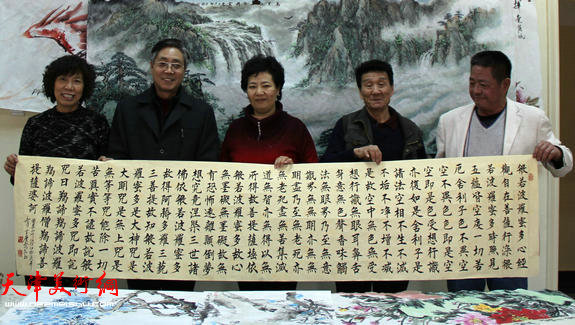 般若波羅蜜多心經
觀自在菩薩行深般
若波羅蜜多時照見
五蘊皆空度一切苦
厄舍利子色不異空
空不異色色即是空
空即是色受想行識
亦復如是舍利子是
諸法空相不生不滅
不垢不淨不增不減
是故空中無色無受
想行識無眼耳鼻舌
身意無色聲香味觸
法無眼界乃至無意
識界無無明亦無無
明盡乃至無老死亦
無老死盡無苦集滅
道無智亦無得以無
所得故菩提薩埵依
般若波羅蜜多故心
無罣礙無罣礙故無
有恐怖遠離顛倒夢
想究竟涅槃三世諸
佛依般若波羅蜜多
故得阿耨多羅三藐
三菩提故知般若波
羅蜜多是大神咒是
大明咒是無上咒是
無等等咒能除一切
苦真實不虛故說般
若波羅蜜多咒即說
咒曰揭諦揭諦波羅
揭諦波羅僧揭諦菩
提薩婆訶
天津美术网